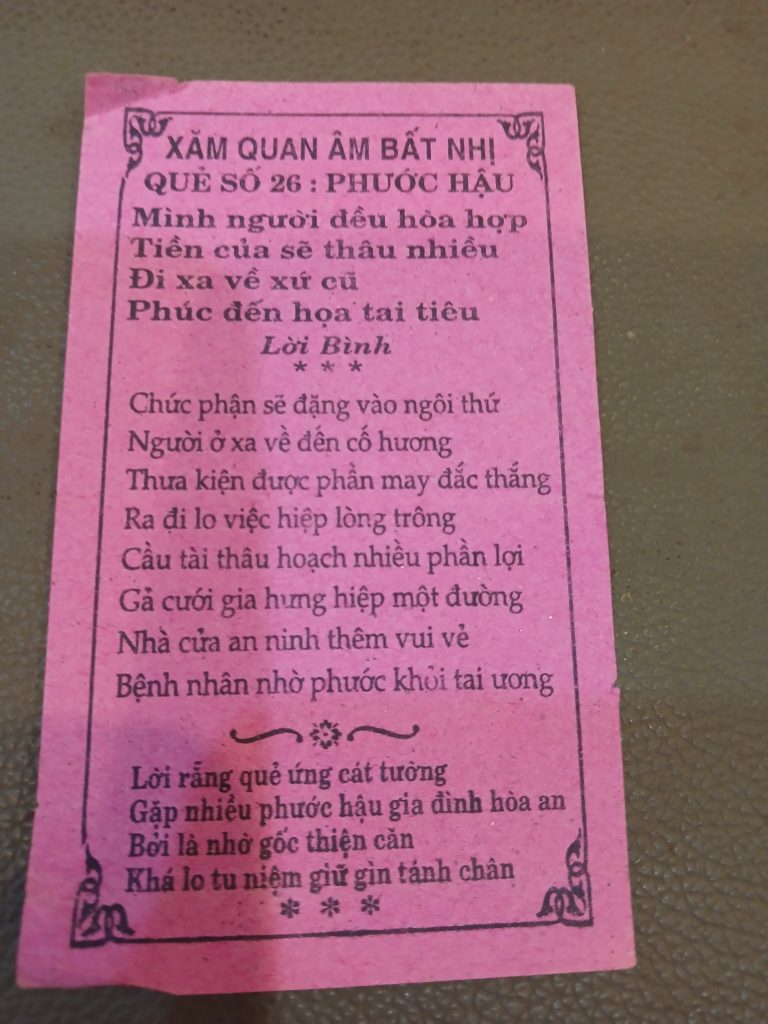 XĂM QUAN ÂM BẤT NHỊ
QUẺ SỐ 26 : PHƯỚC HẬU
Mình người đều hòa hợp
Tiền của sẽ thâu nhiều
Đi xa về xứ cũ
Phúc đến họa tai tiêu
Lời Bình
* * *
Chức phận sẽ đặng vào ngôi thứ
Người ở xa về đến cố hương
Thưa kiện được phần may đắc thắng
Ra đi lo việc hiệp lòng trông
Cầu tài thâu hoạch nhiều phần lợi
Gả cưới gia hưng hiệp một đường
Nhà cửa an ninh thêm vui vẻ
Bệnh nhân nhờ phước khỏi tai ương
Lời rằng quẻ ứng cát tường
Gặp nhiều phước hậu gia đình hòa an
Bởi là nhờ gốc thiện căn
Khá lo tu niệm giữ gìn tánh chân
* * *